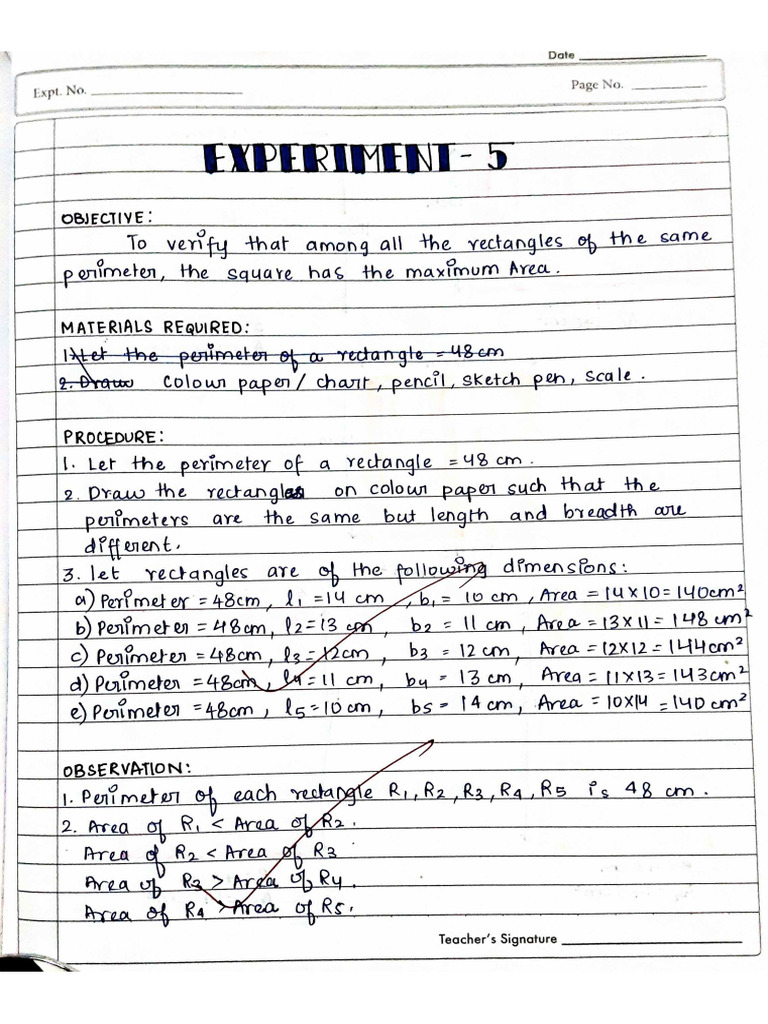 Date
Expt. No.
Page No.
EXPERIMENT - 5
OBJECTIVE:
To verify that among all the rectangles of the same
perimeter, the square has the maximum Area.
MATERIALS REQUIRED:
1. Let the perimeter of a rectangle = 48 cm
2. Draw Colour paper / chart, pencil, sketch pen, scale.
PROCEDURE:
1. Let the perimeter of a rectangle = 48 cm.
2. Draw the rectangles on colour paper such that the
perimeters are the same but length and breadth are
different.
3. let rectangles are of the following dimensions:
a) Perimeter = 48cm, l₁ = 14 cm, b₁ = 10 cm, Area = 14×10 = 140cm²
b) Perimeter = 48cm, l₂ = 13 cm, b₂ = 11 cm, Area = 13×11 = 148 cm²
c) Perimeter = 48cm, l₃ = 12cm, b₃ = 12 cm, Area = 12×12 = 144cm²
d) Perimeter = 48cm, l₄ = 11 cm, b₄ = 13 cm, Area = 11×13 = 143cm²
e) Perimeter = 48cm, l₅ = 10cm, b₅ = 14 cm, Area = 10×14 = 140 cm²
OBSERVATION:
1. Perimeter of each rectangle R₁, R₂, R₃, R₄, R₅ is 48 cm.
2. Area of R₁ < Area of R₂.
Area of R₂ < Area of R₃
Area of R₃ > Area of R₄.
Area of R₄ > Area of R₅.
Teacher's Signature